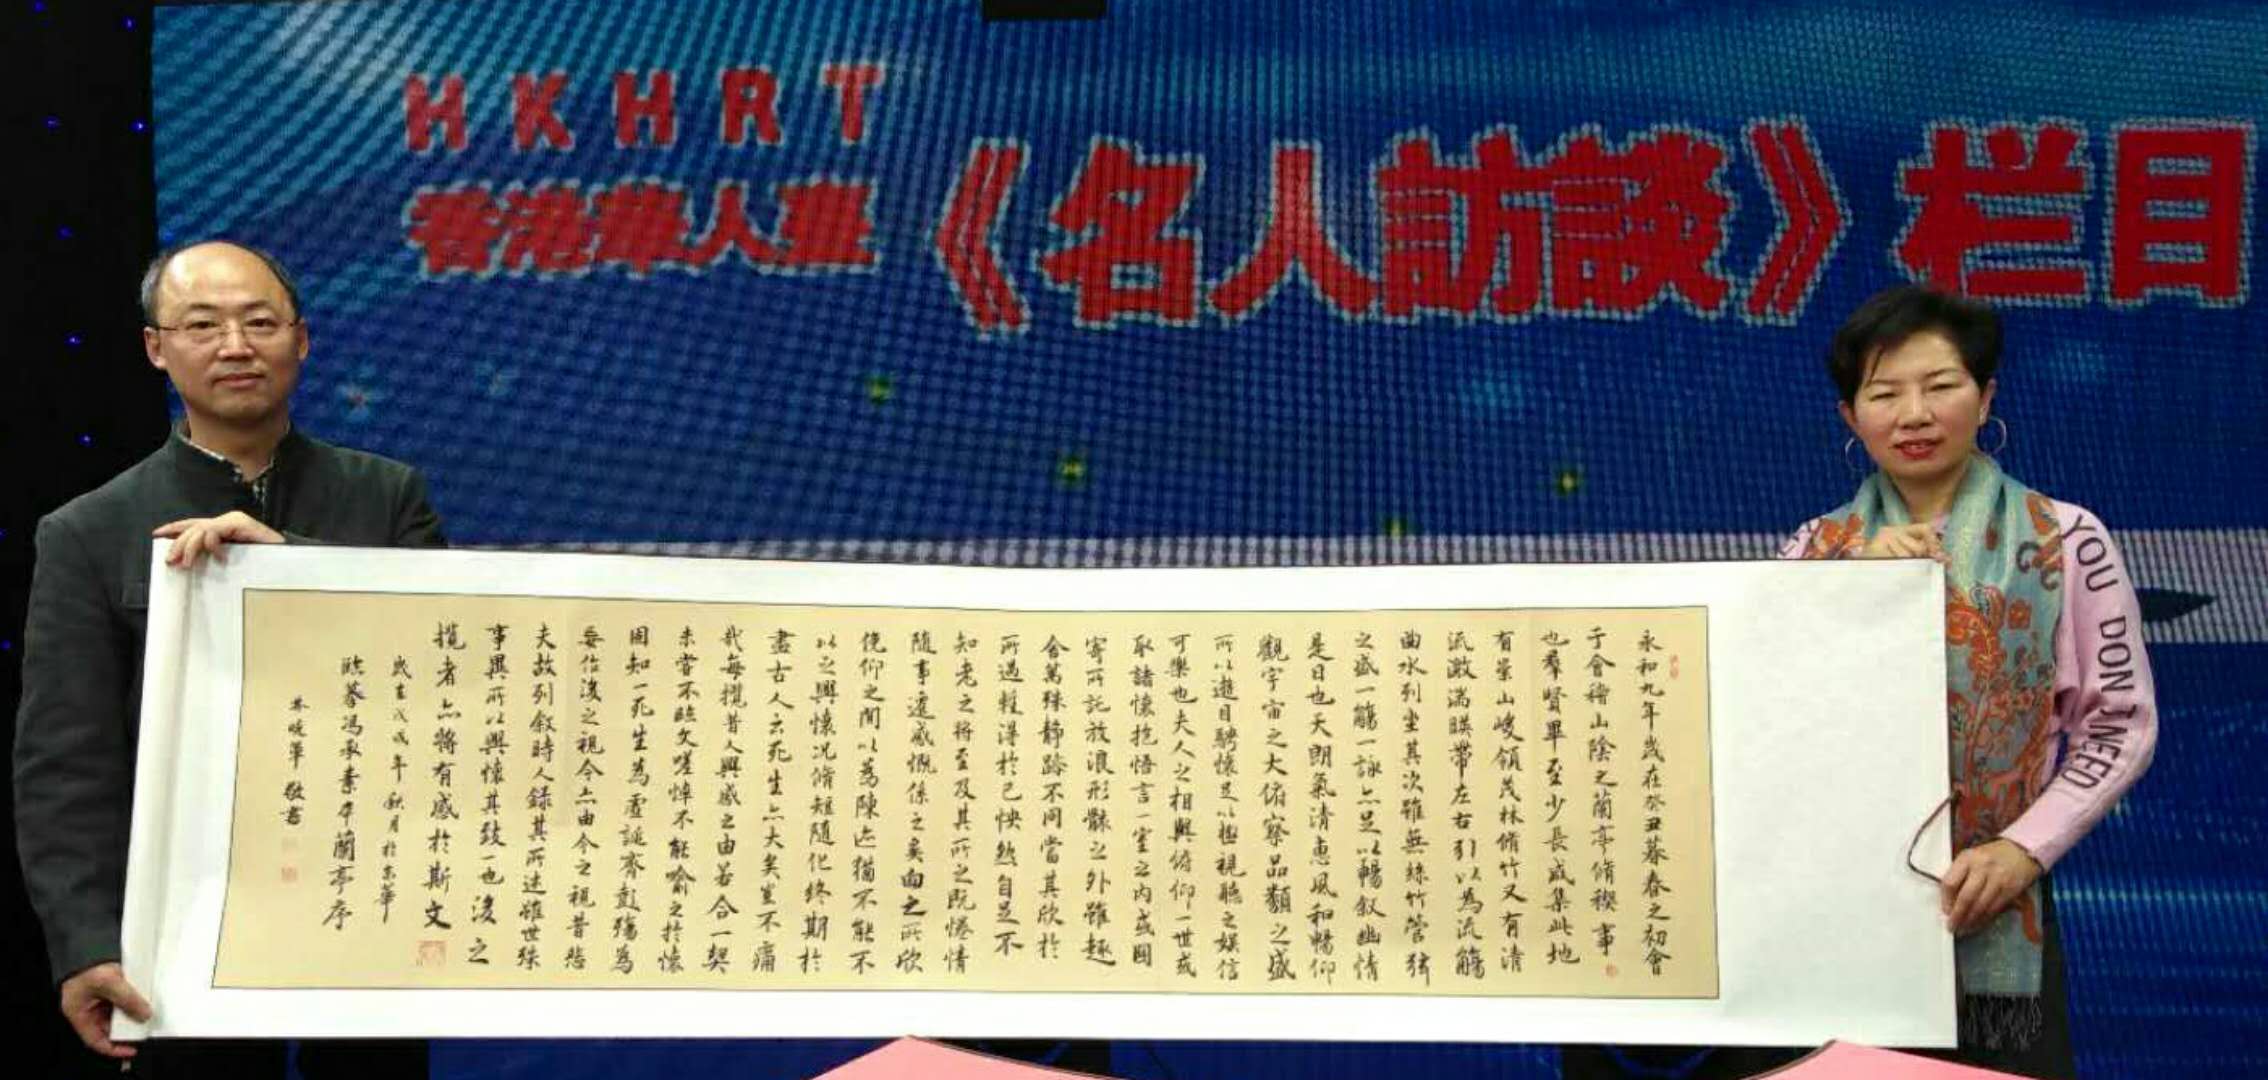 HKHRT
香港華人臺
《名人訪談》栏目
永和九年歲在癸丑暮春之初會
于會稽山陰之蘭亭脩稧事
也羣賢畢至少長咸集此地
有崇山峻領茂林脩竹又有清
流激湍暎帶左右引以為流觴
曲水列坐其次雖無絲竹管弦
之盛一觴一詠亦足以暢叙幽情
是日也天朗氣清惠風和暢仰
觀宇宙之大俯察品類之盛
所以遊目騁懷足以極視聽之娛信
可樂也夫人之相與俯仰一世或
取諸懷抱悟言一室之內或因
寄所託放浪形骸之外雖趣
舍萬殊靜躁不同當其欣於
所遇輒得於己怏然自足不
知老之將至及其所之既惓情
隨事遷感慨係之矣向之所欣
俛仰之間以為陳迹猶不能不
以之興懷況脩短隨化終期於
盡古人云死生亦大矣豈不痛
哉每攬昔人興感之由若合一契
未嘗不臨文嗟悼不能喻之於懷
固知一死生為虛誕齊彭殤為
妄作後之視今亦由今之視昔悲
夫故列叙時人錄其所述雖世殊
事異所以興懷其致一也後之
攬者亦將有感於斯文
歲在戊戌年秋月於京華
臨摹馮承素本蘭亭序
華 敬書
YOU DON NEED